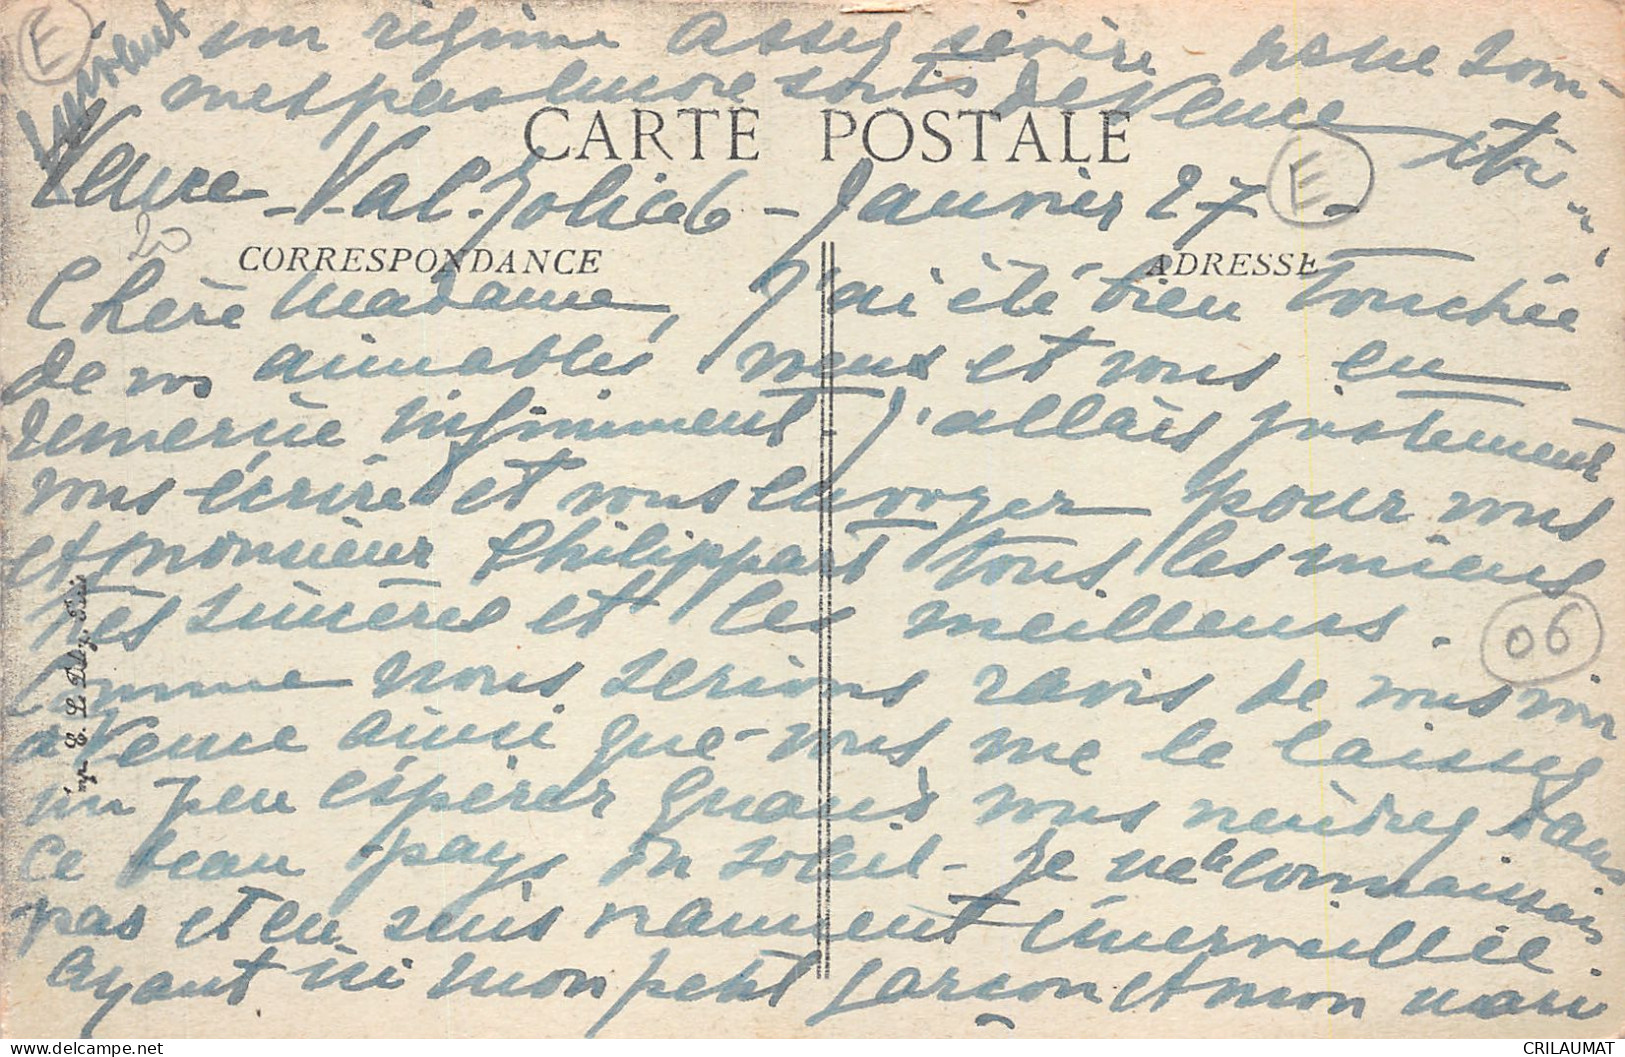 E
suivant
un régime assez sévère nous som-
mes pas encore sortis de Vence
CARTE POSTALE
Vence - Val-Joli ce 6 - Janvier 27 -
E
20
CORRESPONDANCE
ADRESSE
Chère Madame, J'ai été bien touchée
de vos aimables vœux et vous en
remercie infiniment - J'allais justement
vous écrire et vous envoyer pour vous
et monsieur Philippart tous les miens
très sincères et les meilleurs.
06
Comme nous serions ravis de vous voir
à Vence ainsi que vous me le laissez
un peu espérer quand vous viendrez dans
ce beau pays du soleil - Je ne le connaissais
pas et en suis vraiment émerveillée.
Ayant ici mon petit garçon et mon mari
Imp. E. Le Deley, Paris
CRILAUMAT